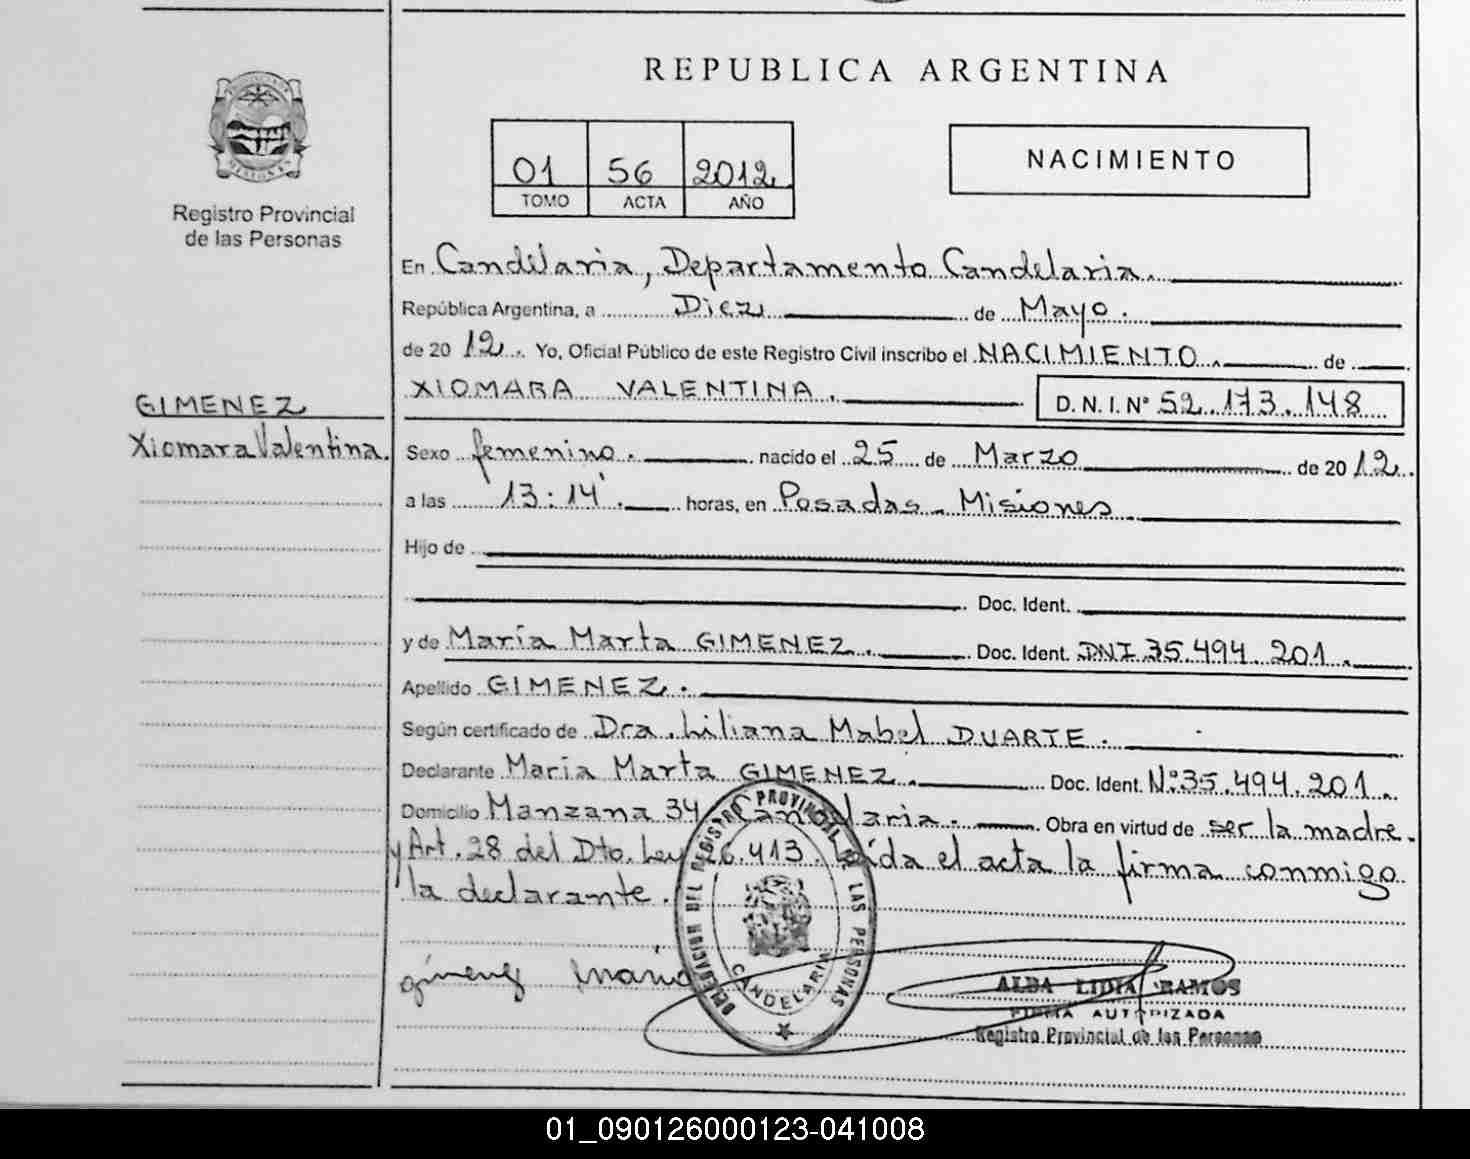 REPUBLICA ARGENTINA
MISIONES
Registro Provincial
de las Personas
01 56 2012
TOMO ACTA AÑO
NACIMIENTO
En Candelaria, Departamento Candelaria.
República Argentina, a Diez de Mayo.
de 20 12. Yo, Oficial Público de este Registro Civil inscribo el NACIMIENTO. de
XIOMARA VALENTINA. D. N. I. N° 52.173.148
GIMENEZ
Xiomara Valentina.
Sexo femenino. nacido el 25 de Marzo de 20 12.
a las 13:14'. horas, en Posadas - Misiones
Hijo de
Doc. Ident.
y de María Marta GIMENEZ. Doc. Ident. DNI 35.494.201.
Apellido GIMENEZ.
Según certificado de Dra. Liliana Mabel DUARTE.
Declarante María Marta GIMENEZ. Doc. Ident. N° 35.494.201.
Domicilio Manzana 34 Candelaria. Obra en virtud de ser la madre.
y Art. 28 del Dto. Ley 26.413. Leída el acta la firma conmigo
la declarante.
DELEGACION DEL REGISTRO PROVINCIAL DE LAS PERSONAS
CANDELARIA
gimenez maria
ALBA LIDIA RAMOS
FIRMA AUTORIZADA
Registro Provincial de las Personas
01_090126000123-041008